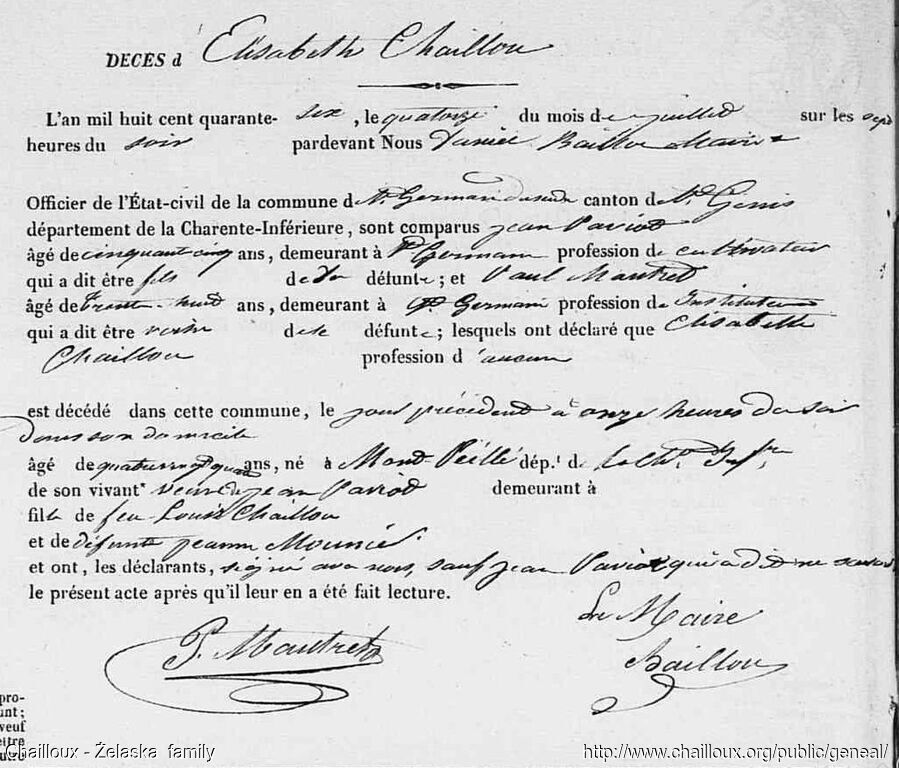 DECES d Elisabeth Chaillou
L'an mil huit cent quarante- six, le quatorze du mois de juillet sur les sept
heures du soir pardevant Nous Daniel Baillou Maire
Officier de l'État-civil de la commune de St. Germain canton de St. Genis
département de la Charente-Inférieure, sont comparus jean Paviot
âgé de cinquant cinq ans, demeurant à St Germain profession de cultivateur
qui a dit être fils de la défunte; et Paul Mautret
âgé de trente-huit ans, demeurant à St. Germain profession de Instituteur
qui a dit être voisin de la défunte; lesquels ont déclaré que Elisabeth
Chaillou profession d'aucune
est décédé dans cette commune, le jour précédent à onze heures du soir
dans son domicile
âgé de quatrevingt quatre ans, né à Mond dép.t de la Ch.te Inf.re
de son vivant veuve de jean Paviot demeurant à
fille de feu Louis Chaillou
et de défunte jeanne Mounié
et ont, les déclarants, signé avec nous, sauf jean Paviot qui a dit ne savoir
le présent acte après qu'il leur en a été fait lecture.
Le Maire
P. Mautret
Baillou
pro-
unt;
veuf
ettre
Chailloux - Żelaska family http://www.chailloux.org/public/geneal/